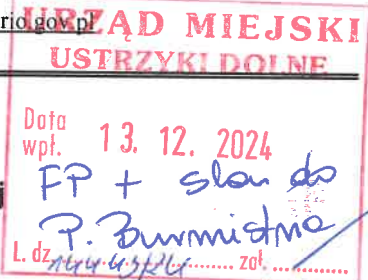 rio.gov.pl
URZĄD MIEJSKI
USTRZYKI DOLNE
Data
wpł. 13. 12. 2024
FP + skan do
P. Burmistrza
L. dz. zał.